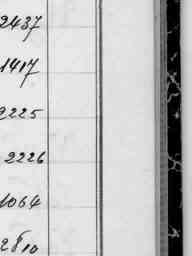 2437
1417
2225
2226
1064
2810